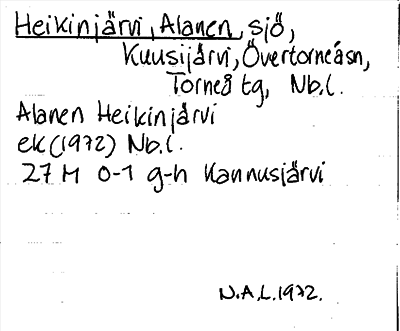 Heikinjärvi, Alanen, sjö,
Kuusijärvi, Övertorneåsn,
Torneå tg, Nb.l.
Alanen Heikinjärvi
ek(1972) Nb.l.
27 M 0-1 g-h Kannusjärvi
N.A.L.1972.